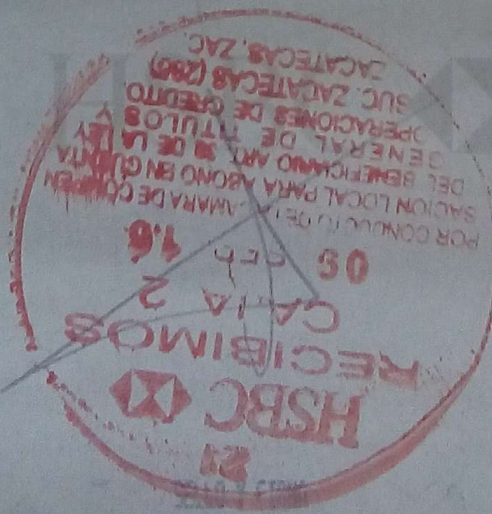 21
HSBC
RECIBIMOS
CAJA 2
09 FEB 16
POR CONDUCTO DE CAMARA DE COMPEN
SACION LOCAL PARA ABONO EN CUENTA
DEL BENEFICIARIO ART. 39 DE LA LEY
GENERAL DE TITULOS Y
OPERACIONES DE CREDITO
SUC. ZACATECAS (286)
ZACATECAS, ZAC.